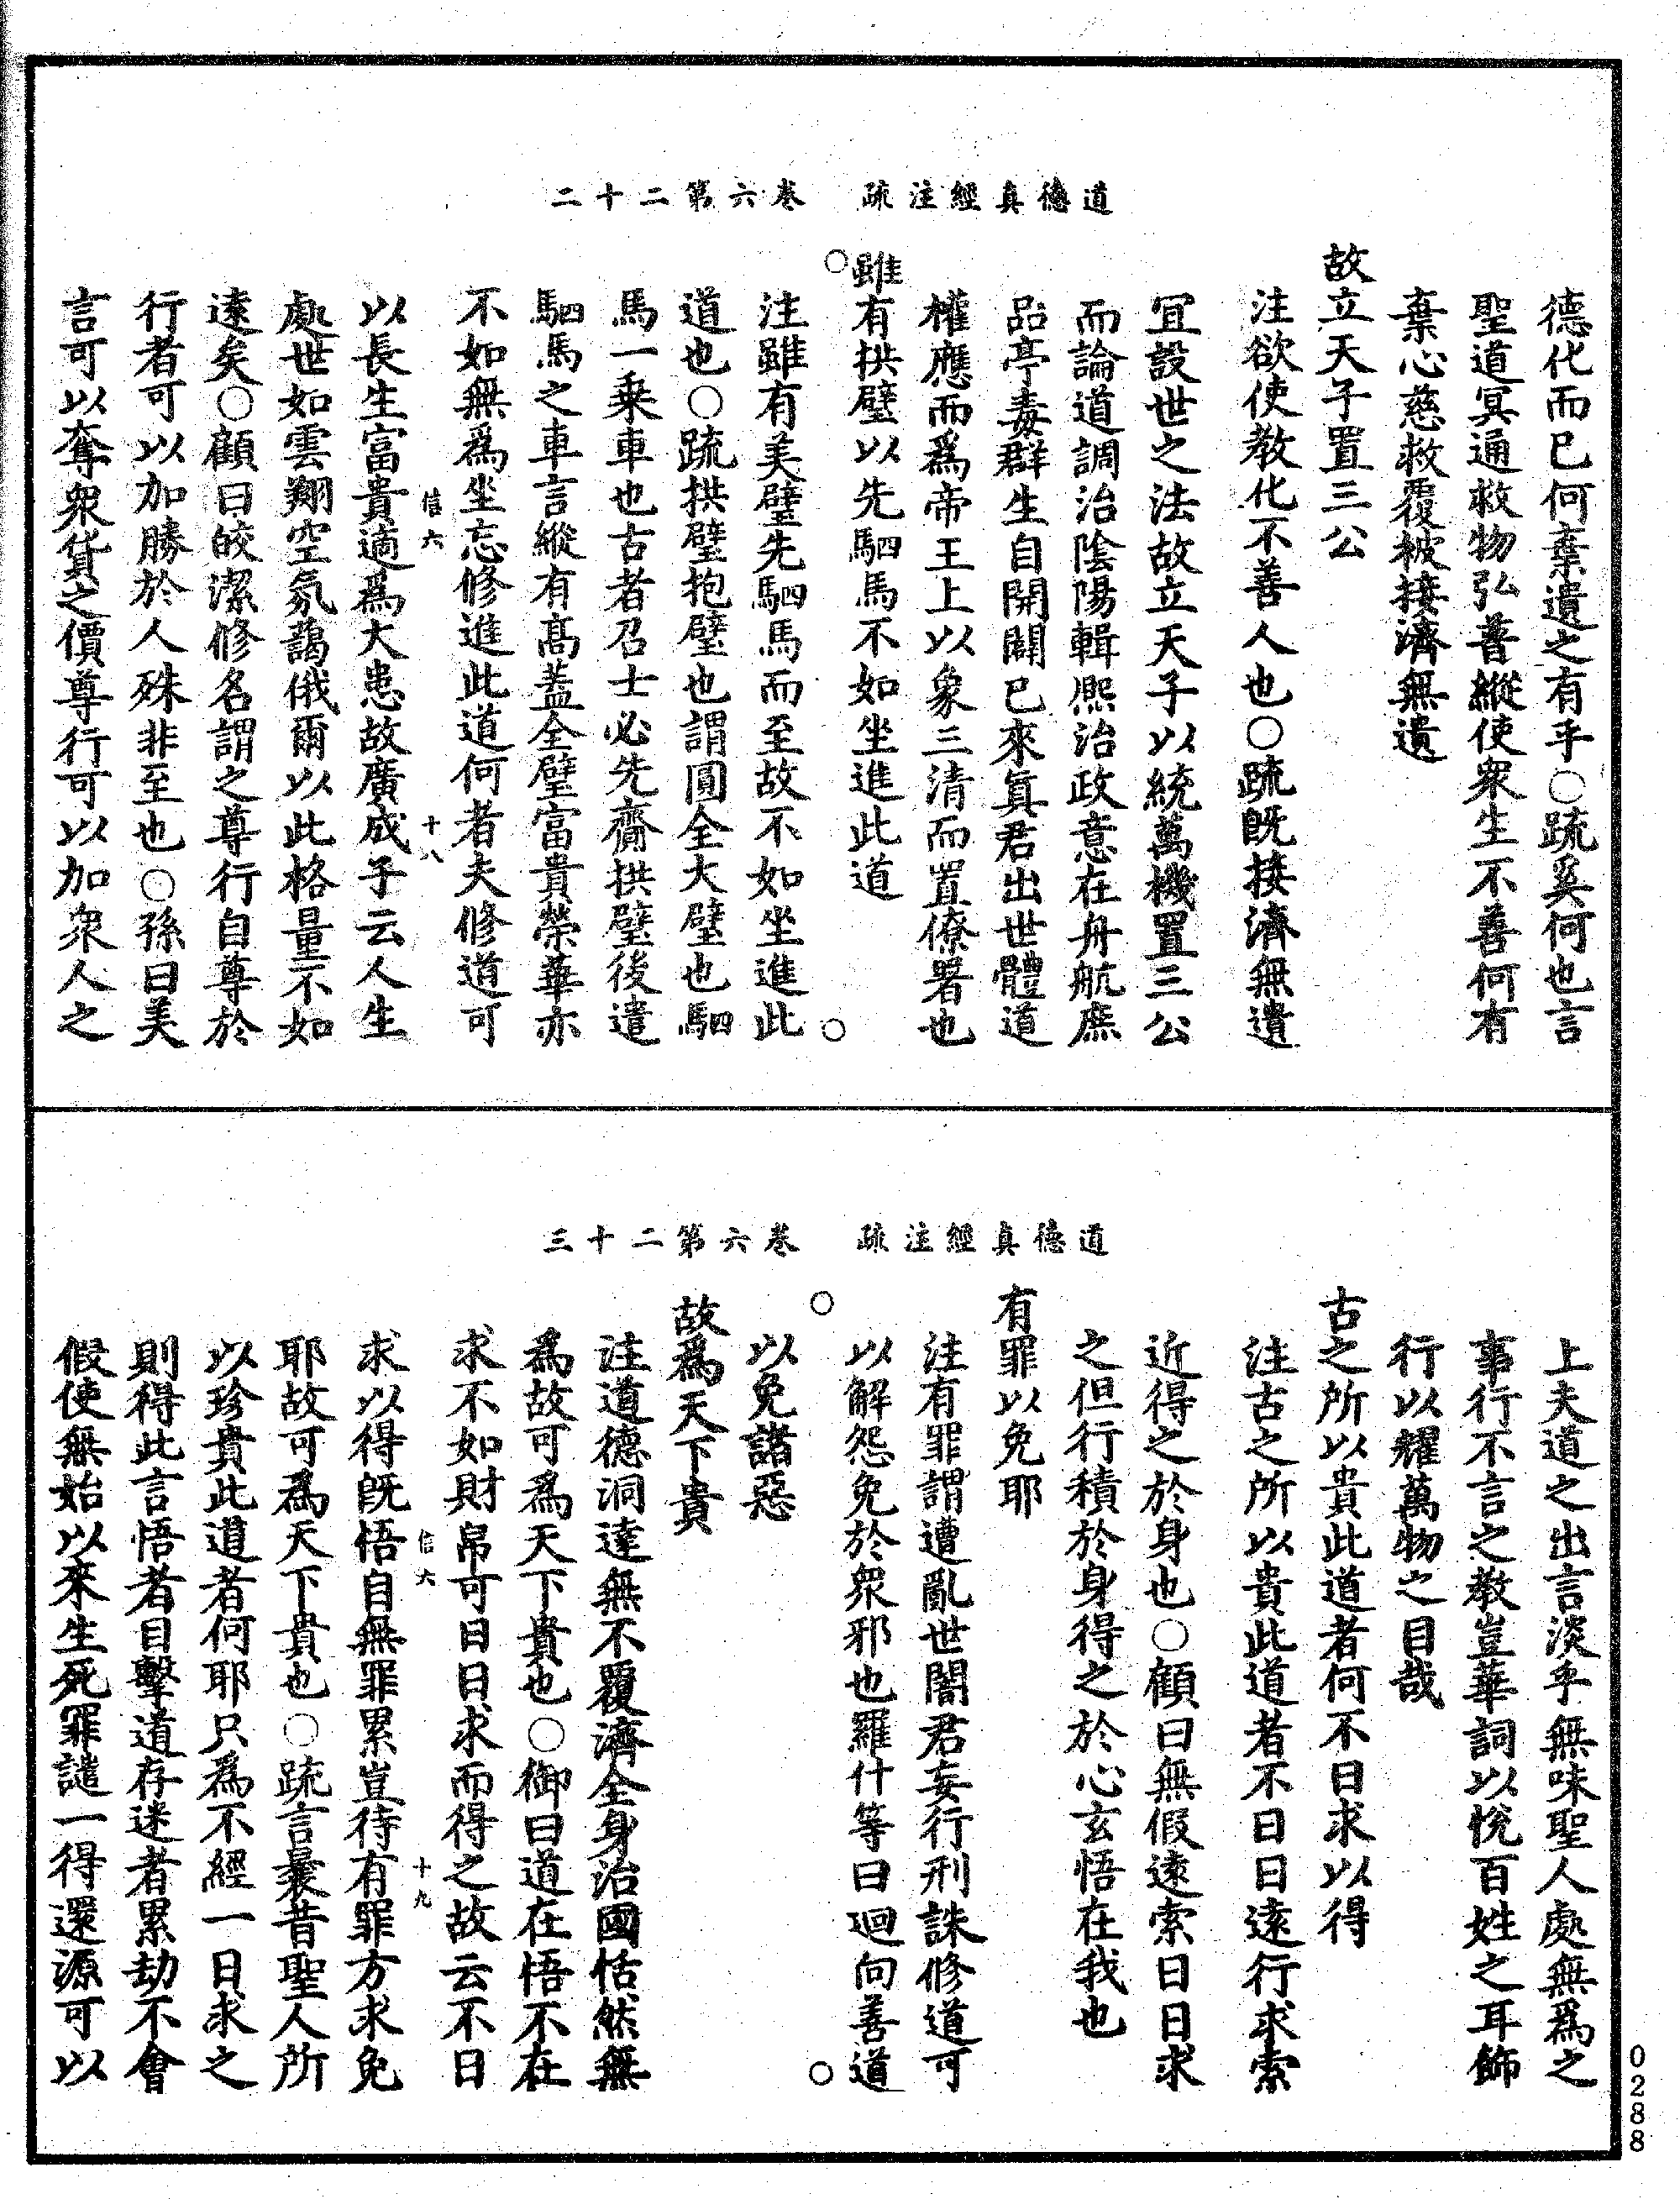 道德真經注疏　卷六第二十二
德化而已何棄遺之有乎○疏奚何也言
聖道冥通救物弘普縱使衆生不善何有
棄心慈救覆被接濟無遺
故立天子置三公
注欲使教化不善人也○疏旣接濟無遺
冝設世之法故立天子以統萬機置三公
而論道調治陰陽輯熈治政意在舟航庶
品亭毒群生自開闢已來眞君出世體道
權應而爲帝王上以象三清而置僚署也
雖有拱璧以先駟馬不如坐進此道
注雖有美璧先駟馬而至故不如坐進此
道也○疏拱璧抱璧也謂圓全大璧也駟
馬一乗車也古者召士必先齎拱璧後遣
駟馬之車言縱有髙蓋全璧富貴榮華亦
不如無爲坐忘修進此道何者夫修道可
信六　十八
以長生富貴適爲大患故廣成子云人生
處世如雲翔空氛藹俄爾以此格量不如
遠矣○顧曰皎潔修名謂之尊行自尊於
行者可以加勝於人殊非至也○孫曰美
言可以奪衆貨之價尊行可以加衆人之
道德真經注疏　卷六第二十三
上夫道之出言淡乎無味聖人處無爲之
事行不言之教豈華詞以悅百姓之耳飾
行以耀萬物之目哉
古之所以貴此道者何不日求以得
注古之所以貴此道者不日日遠行求索
近得之於身也○顧曰無假遠索日日求
之但行積於身得之於心玄悟在我也
有罪以免耶
注有罪謂遭亂世闇君妄行刑誅修道可
以解怨免於衆邪也羅什等曰迴向善道
以免諸惡
故爲天下貴
注道德洞達無不覆濟全身治國恬然無
爲故可爲天下貴也○御曰道在悟不在
求不如財帛可日日求而得之故云不日
信六　十九
求以得旣悟自無罪累豈待有罪方求免
耶故可爲天下貴也○疏言曩昔聖人所
以珍貴此道者何耶只爲不經一日求之
則得此言悟者目擊道存迷者累劫不會
假使無始以來生死罪譴一得還源可以
0288